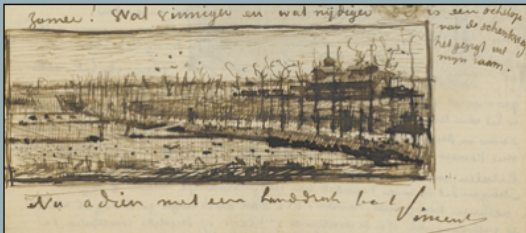 zomer! Wat vinniger en wat nijdiger
is een schets
van de schenkweg
het gezigt uit
mijn raam.
Nu adieu met een handdruk
Vincent